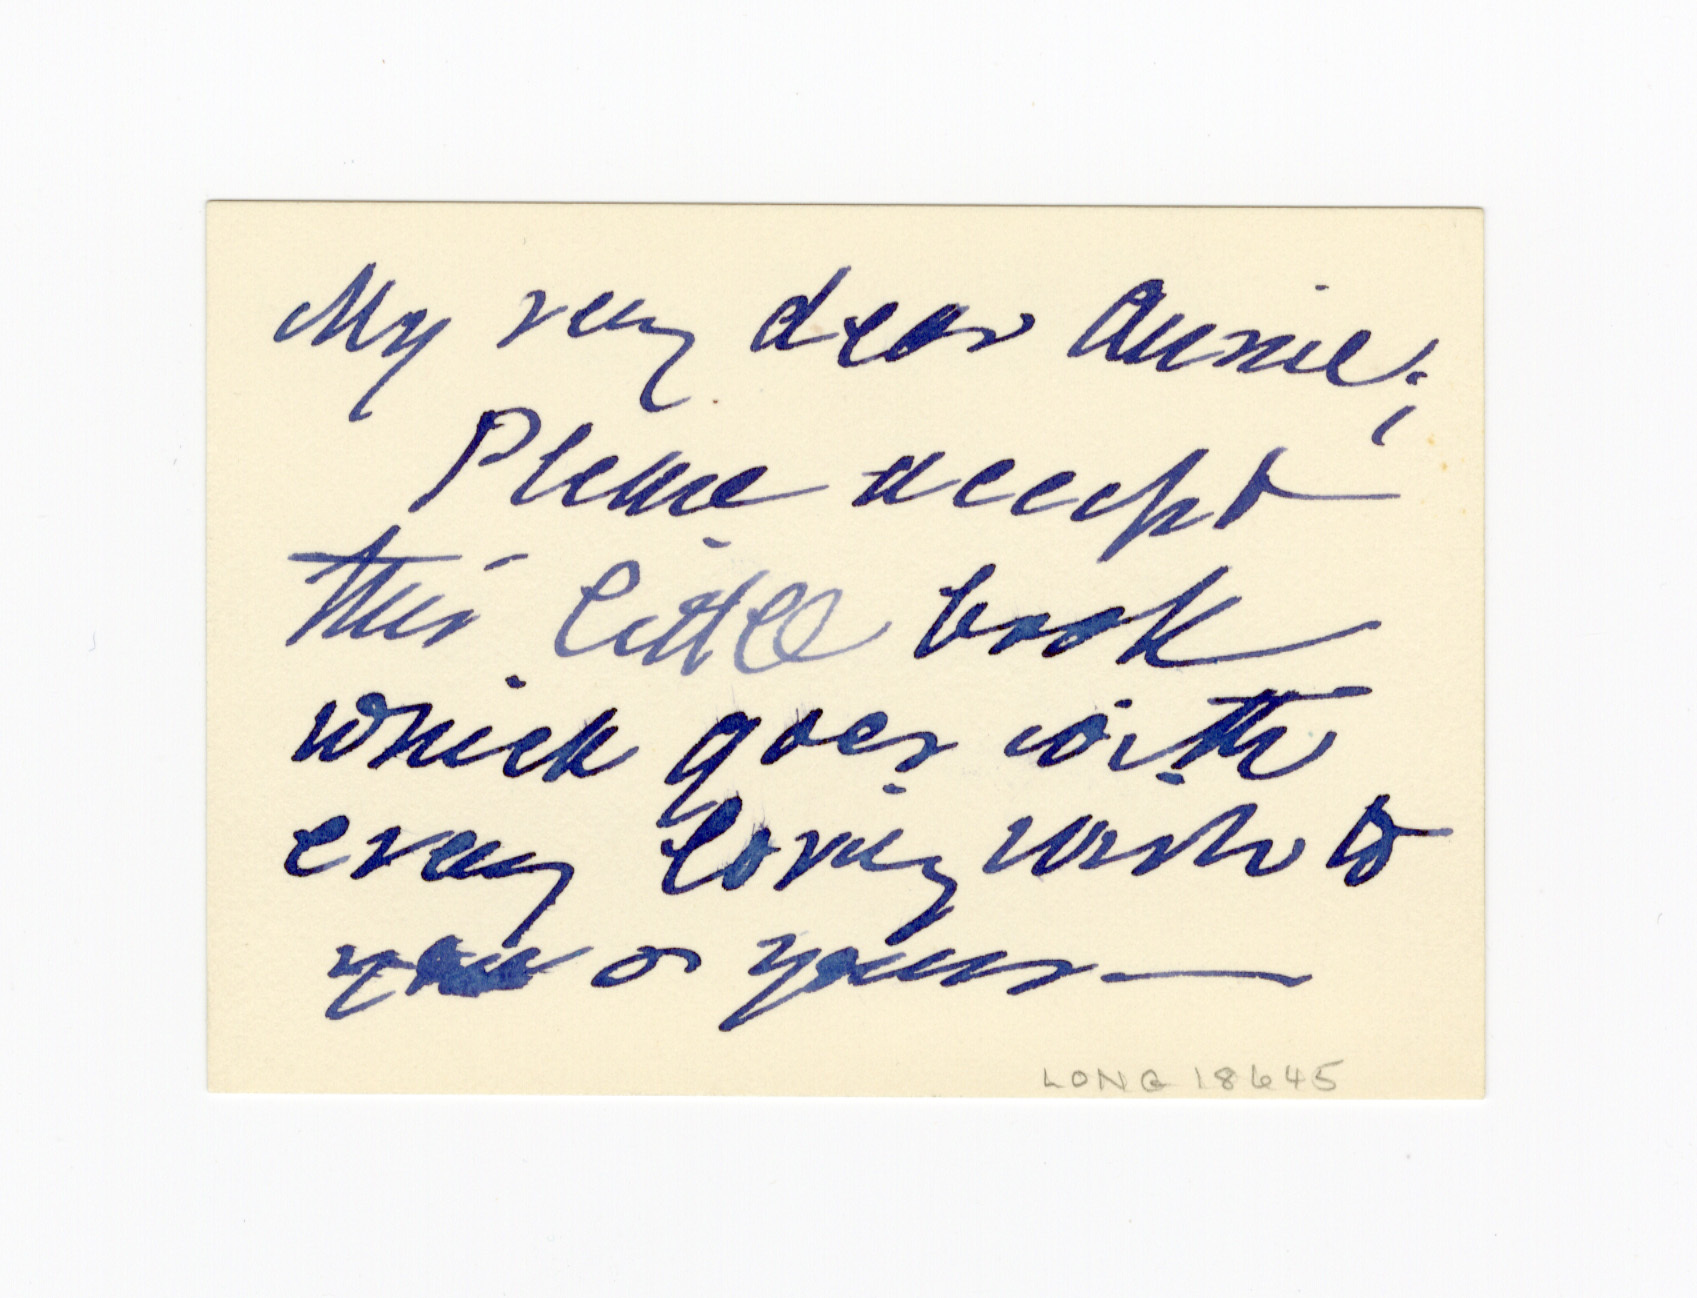 My very dear Annie;
Please accept
this little book
which goes with
every loving wish to
you or yours—
LONG 18645